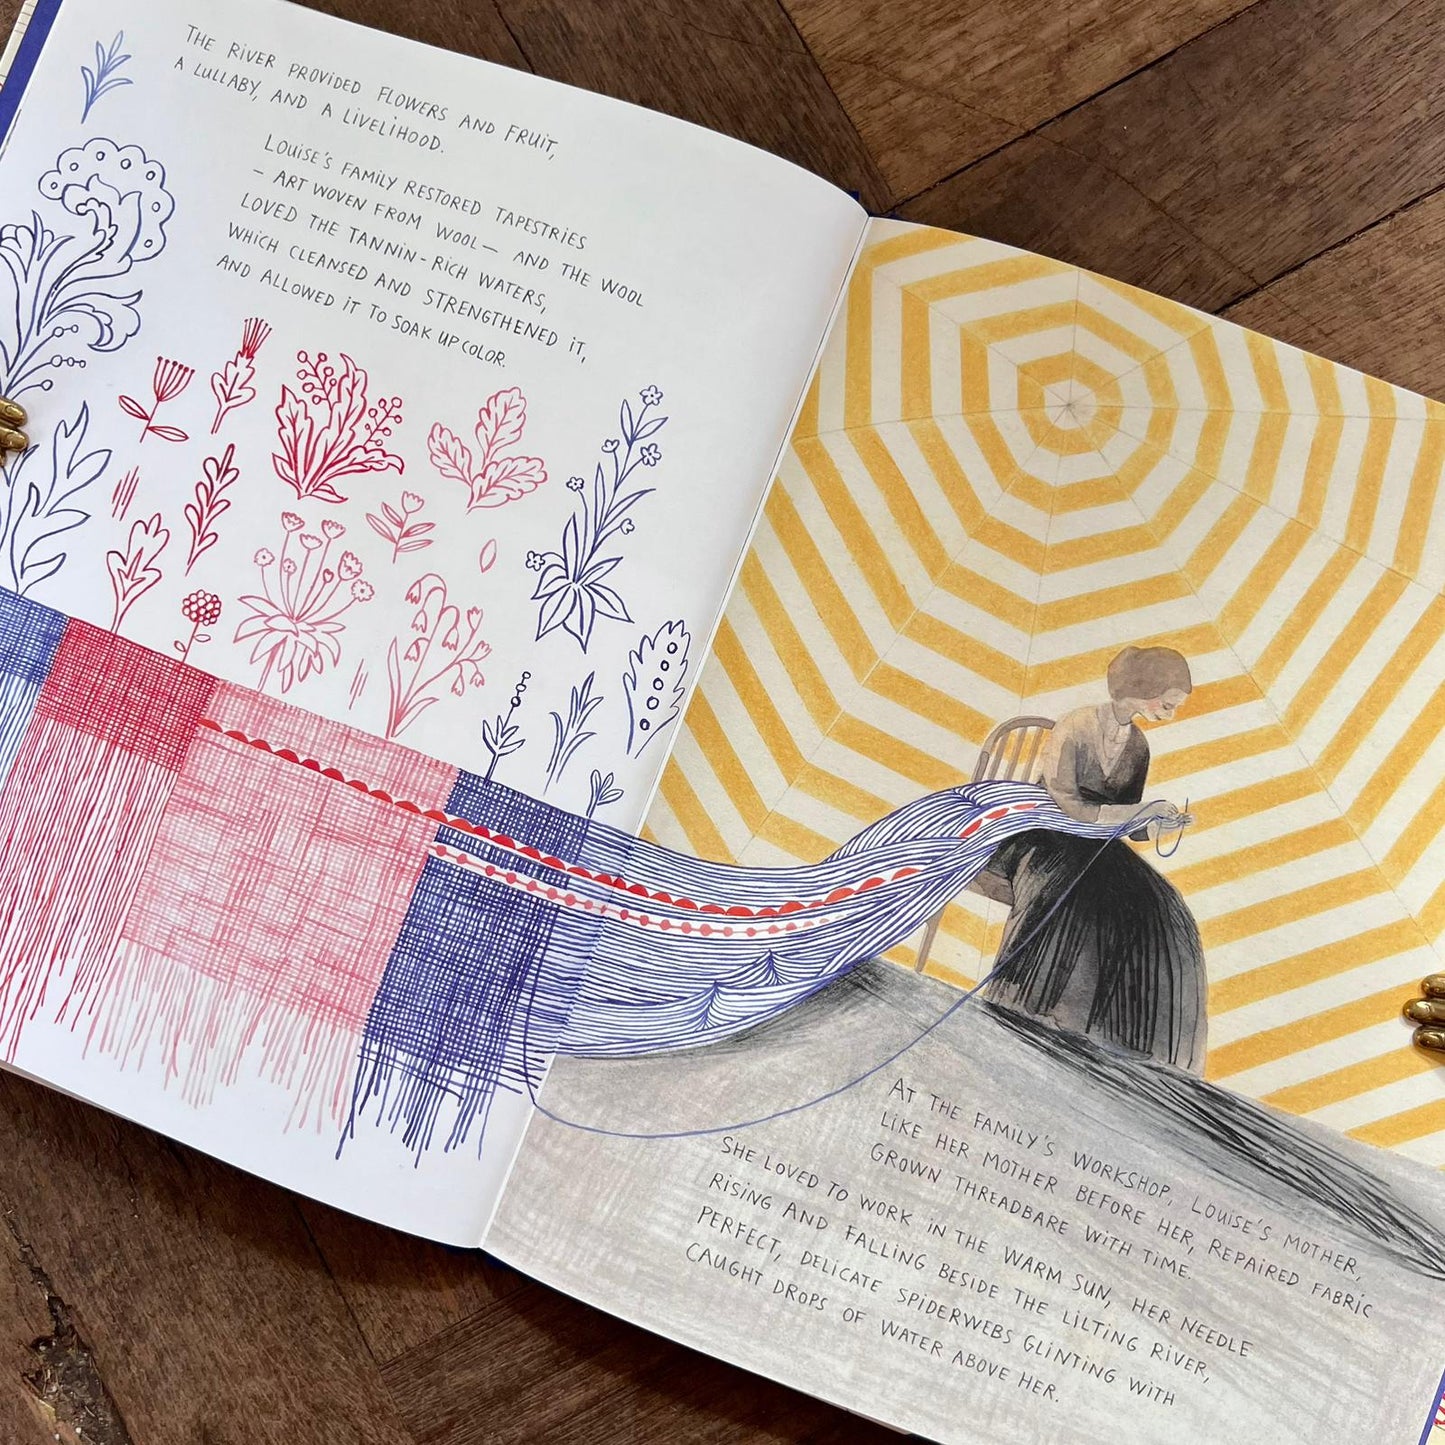 THE RIVER PROVIDED FLOWERS AND FRUIT,
A LULLABY, AND A LIVELIHOOD.
LOUISE'S FAMILY RESTORED TAPESTRIES
- ART WOVEN FROM WOOL - AND THE WOOL
LOVED THE TANNIN-RICH WATERS,
WHICH CLEANSED AND STRENGTHENED IT,
AND ALLOWED IT TO SOAK UP COLOR.
AT THE FAMILY'S WORKSHOP, LOUISE'S MOTHER,
LIKE HER MOTHER BEFORE HER, REPAIRED FABRIC
GROWN THREADBARE WITH TIME.
SHE LOVED TO WORK IN THE WARM SUN, HER NEEDLE
RISING AND FALLING BESIDE THE LILTING RIVER,
PERFECT, DELICATE SPIDERWEBS GLINTING WITH
CAUGHT DROPS OF WATER ABOVE HER.